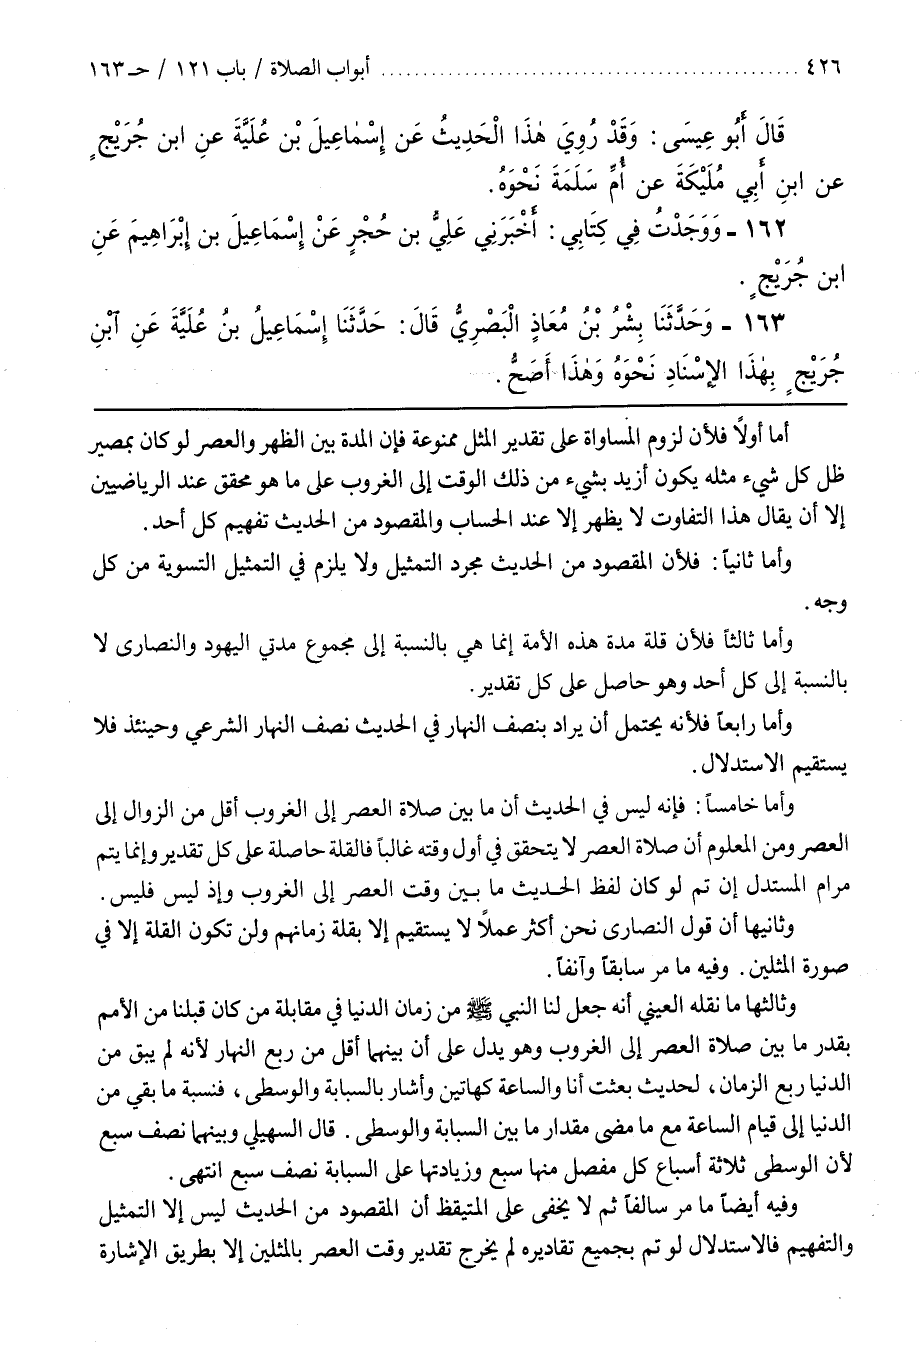 ٤٢٦ ........................................ أبواب الصلاة / باب ١٢١ / حـ ١٦٣
قَالَ أَبُو عِيسَى: وَقَدْ رُوِيَ هٰذَا الْحَدِيثُ عَن إِسْمَاعِيلَ بْن عُلَيَّةَ عنِ ابن جُرَيْجٍ
عن ابنِ أَبِي مُلَيْكَةَ عن أُمِّ سَلَمَةَ نَحْوَهُ.
١٦٢ - وَوَجَدْتُ فِي كِتَابِي: أَخْبَرَنِي عَلِيُّ بن حُجْرٍ عَنْ إِسْمَاعِيلَ بن إِبْرَاهِيمَ عَنِ
ابن جُرَيْجٍ.
١٦٣ - وَحَدَّثَنَا بِشْرُ بْنُ مُعَاذٍ الْبَصْرِيُّ قَالَ: حَدَّثَنَا إِسْمَاعِيلُ بنُ عُلَيَّةَ عَنِ آبْنِ
جُرَيْجٍ بِهٰذَا الإِسْنَادِ نَحْوَهُ وَهٰذَا أَصَحُّ.
أما أولاً فلأن لزوم المساواة على تقدير المثل ممنوعة فإن المدة بين الظهر والعصر لو كان بمصير
ظل كل شيء مثله يكون أزيد بشيء من ذلك الوقت إلى الغروب على ما هو محقق عند الرياضيين
إلا أن يقال هذا التفاوت لا يظهر إلا عند الحساب والمقصود من الحديث تفهيم كل أحد.
وأما ثانياً: فلأن المقصود من الحديث مجرد التمثيل ولا يلزم في التمثيل التسوية من كل
وجه.
وأما ثالثاً فلأن قلة مدة هذه الأمة إنما هي بالنسبة إلى مجموع مدتي اليهود والنصارى لا
بالنسبة إلى كل أحد وهو حاصل على كل تقدير.
وأما رابعاً فلأنه يحتمل أن يراد بنصف النهار في الحديث نصف النهار الشرعي وحينئذ فلا
يستقيم الاستدلال.
وأما خامساً: فإنه ليس في الحديث أن ما بين صلاة العصر إلى الغروب أقل من الزوال إلى
العصر ومن المعلوم أن صلاة العصر لا يتحقق في أول وقته غالباً فالقلة حاصلة على كل تقدير وإنما يتم
مرام المستدل إن تم لو كان لفظ الحديث ما بين وقت العصر إلى الغروب وإذ ليس فليس.
وثانيها أن قول النصارى نحن أكثر عملاً لا يستقيم إلا بقلة زمانهم ولن تكون القلة إلا في
صورة المثلين. وفيه ما مر سابقاً وآنفاً.
وثالثها ما نقله العيني أنه جعل لنا النبي ﷺ من زمان الدنيا في مقابلة من كان قبلنا من الأمم
بقدر ما بين صلاة العصر إلى الغروب وهو يدل على أن بينهما أقل من ربع النهار لأنه لم يبق من
الدنيا ربع الزمان، لحديث بعثت أنا والساعة كهاتين وأشار بالسبابة والوسطى، فنسبة ما بقي من
الدنيا إلى قيام الساعة مع ما مضى مقدار ما بين السبابة والوسطى. قال السهيلي وبينهما نصف سبع
لأن الوسطى ثلاثة أسباع كل مفصل منها سبع وزيادتها على السبابة نصف سبع انتهى.
وفيه أيضاً ما مر سالفاً ثم لا يخفى على المتيقظ أن المقصود من الحديث ليس إلا التمثيل
والتفهيم فالاستدلال لو تم بجميع تقاديره لم يخرج تقدير وقت العصر بالمثلين إلا بطريق الإشارة